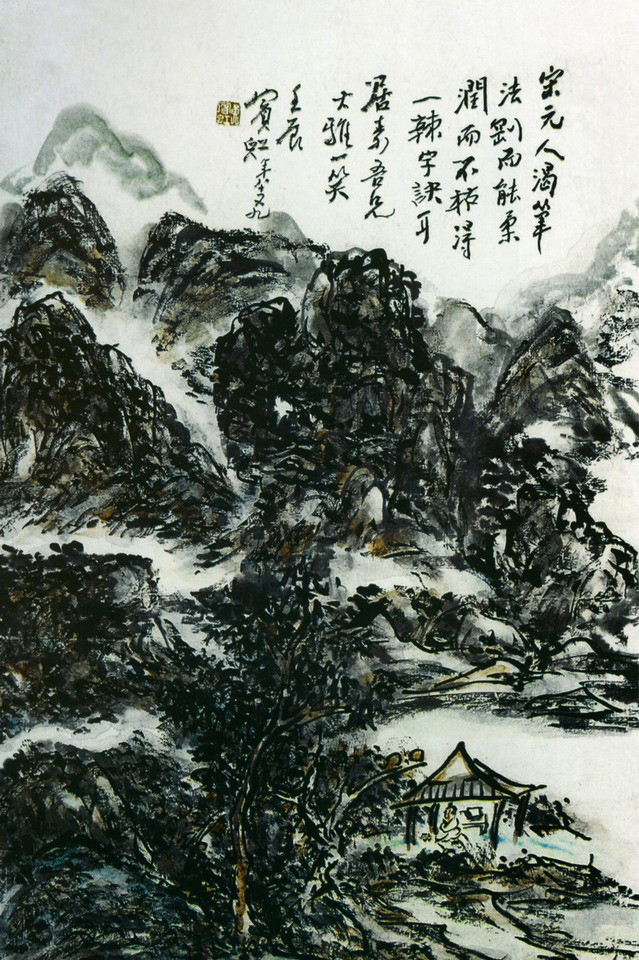 宋元人渴筆
法剛而能柔
潤而不枯得
一辣字訣耳
居素吾兄
大雅一笑
壬辰
賓虹年八十又九